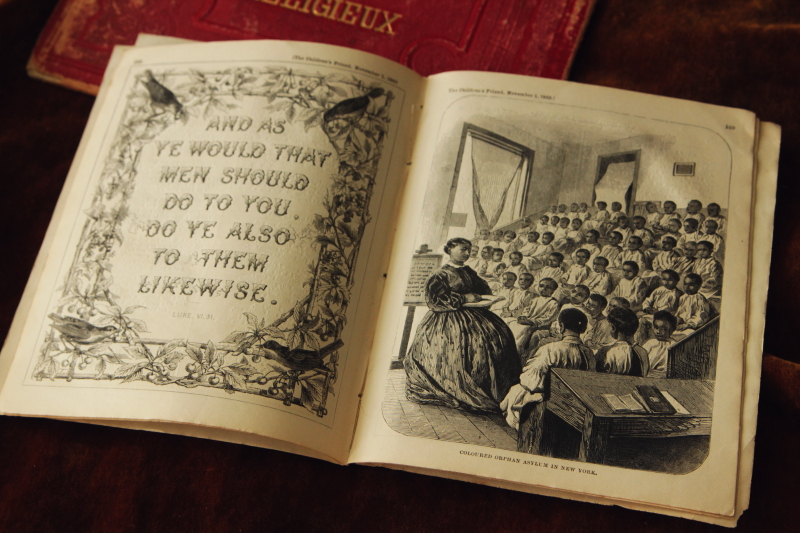 RELIGIEUX
[The Children's Friend, November 1, 186
AND AS
YE WOULD THAT
MEN SHOULD
DO TO YOU,
DO YE ALSO
TO THEM
LIKEWISE.
LUKE VI. 31.
The Children's Friend, November 1, 186
COLOURED ORPHAN ASYLUM IN NEW YORK.